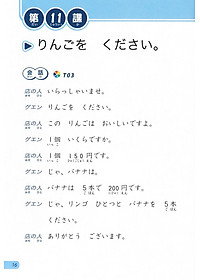 第11課
りんごを ください。
会話 T03
店の人 いらっしゃいませ。
グエン りんごを ください。
店の人 この りんごは おいしいですよ。
グエン 1個 いくらですか。
店の人 1個 150円です。
グエン じゃ、バナナは。
店の人 バナナは 5本で 200円です。
グエン じゃ、リンゴ ひとつと バナナを 5本
ください。
店の人 ありがとう ございます。